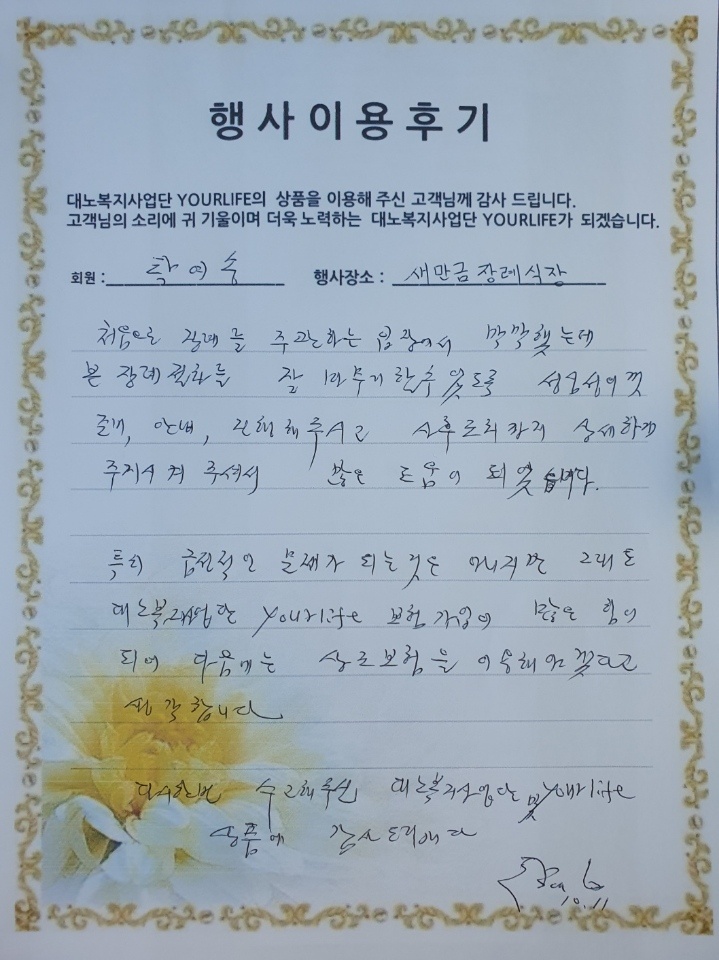 행사이용후기
대노복지사업단 YOURLIFE의 상품을 이용해 주신 고객님께 감사 드립니다.
고객님의 소리에 귀 기울이며 더욱 노력하는 대노복지사업단 YOURLIFE가 되겠습니다.
회원 : 탁여송 행사장소 : 새만금장례식장
처음으로 장례를 주관하는 입장에서 막막했는데
본 장례절차를 잘 마무리 할수 있도록 성심성의껏
준비, 안내, 진행해 주시고 사후 도리까지 상세하게
주지시켜 주셔서 많은 도움이 되었습니다.
특히 금전적인 문제가 되는 것은 아니지만 그래도
대노복지사업단 yourlife 보험가입이 많은 힘이
되어 다음에는 상조보험을 이용해야 겠다고
생각합니다
다시한번 수고해주신 대노복지사업단 및 yourlife
상품에 감사드립니다
10.11